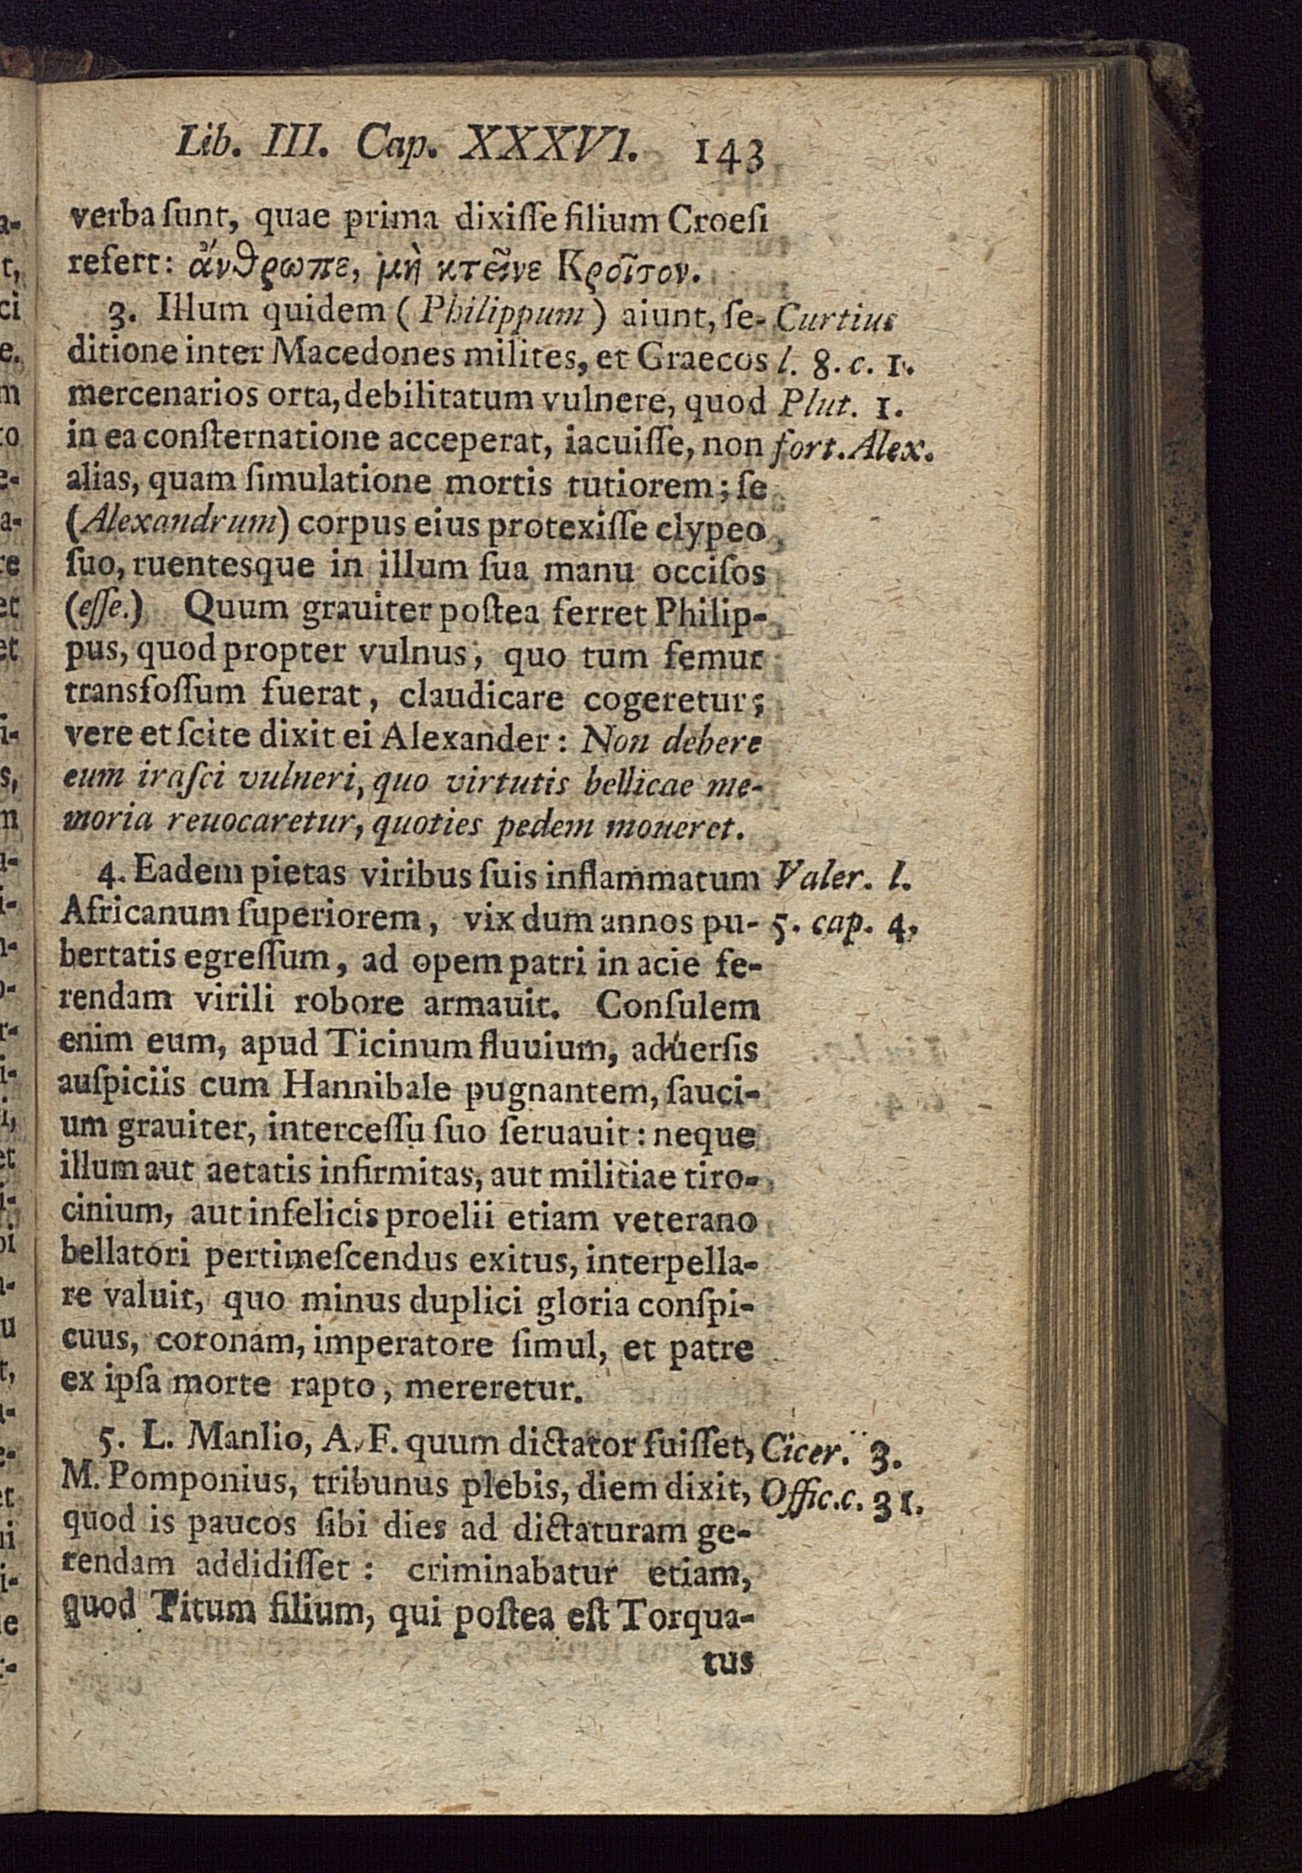 Lib. III. Cap. XXXVI. 143
verba sunt, quae prima dixisse filium Croesi
refert: ἄνθρωπε, μὴ κτεῖνε Κροῖσον.
3. Illum quidem (Philippum) aiunt, se- Curtius
ditione inter Macedones milites, et Graecos l. 8. c. 1.
mercenarios orta, debilitatum vulnere, quod Plut. 1.
in ea consternatione acceperat, iacuisse, non fort. Alex.
alias, quam simulatione mortis tutiorem; se
(Alexandrum) corpus eius protexisse clypeo
suo, ruentesque in illum sua manu occisos
(esse.) Quum grauiter postea ferret Philip-
pus, quod propter vulnus, quo tum femur
transfossum fuerat, claudicare cogeretur;
vere et scite dixit ei Alexander: Non debere
eum irasci vulneri, quo virtutis bellicae me-
moria reuocaretur, quoties pedem moueret.
4. Eadem pietas viribus suis inflammatum Valer. l.
Africanum superiorem, vix dum annos pu- 5. cap. 4,
bertatis egressum, ad opem patri in acie fe-
rendam virili robore armauit. Consulem
enim eum, apud Ticinum fluuium, aduersis
auspiciis cum Hannibale pugnantem, sauci-
um grauiter, intercessu suo seruauit: neque
illum aut aetatis infirmitas, aut militiae tiro-
cinium, aut infelicis proelii etiam veterano
bellatori pertimescendus exitus, interpella-
re valuit, quo minus duplici gloria conspi-
cuus, coronam, imperatore simul, et patre
ex ipsa morte rapto, mereretur.
5. L. Manlio, A. F. quum dictator fuisset, Cicer. 3.
M. Pomponius, tribunus plebis, diem dixit, Offic. c. 31.
quod is paucos sibi dies ad dictaturam ge-
rendam addidisset: criminabatur etiam,
quod Titum filium, qui postea est Torqua-
tus